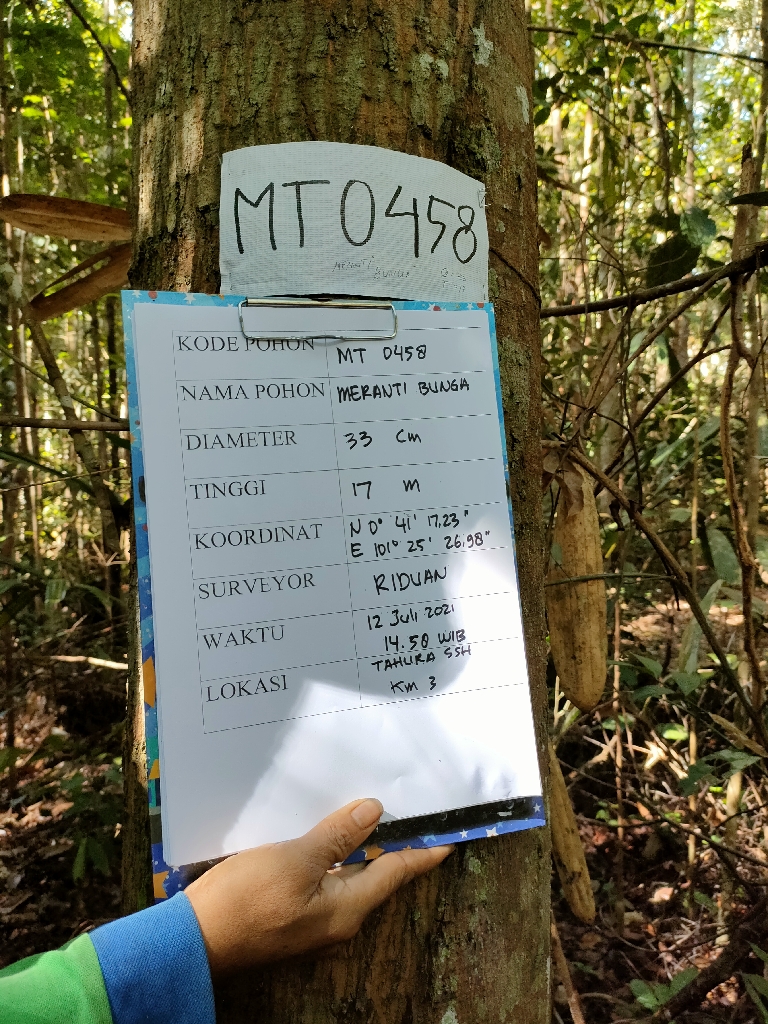 MT0458
MERANTI BUNGA
KODE POHON MT 0458
NAMA POHON MERANTI BUNGA
DIAMETER 33 Cm
TINGGI 17 m
KOORDINAT N 0° 41' 17,23"
E 101° 25' 26,98"
SURVEYOR RIDUAN
WAKTU 12 Juli 2021
14.58 WIB
LOKASI TAHURA SSH
Km 3